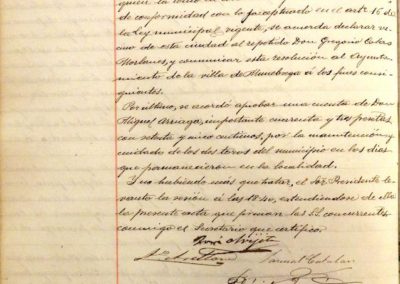 de conformidad con lo preceptuado en el artº 16 de
la Ley municipal vigente, se acuerda declarar ve
cino de esta ciudad al repetido Don Gregorio
Morlanes, y comunicar esta resolución al Ayunta
miento de la villa de Munébrega á los fines consi
guientes.
Por último, se acordó aprobar una cuenta de Don
Miguel Arriaga, importante cuarenta y tres pesetas
con setenta y cinco céntimos, por la manutención y
cuidado de los dos toros del municipio en los días
que permanecieron en la localidad.
Y no habiendo más que tratar, el Sor. Presidente le
vantó la sesión á las 18'40, extendiéndose de ella
la presente acta que firman los S.S. concurrentes
conmigo el Secretario que certifico.
Manuel Catalan